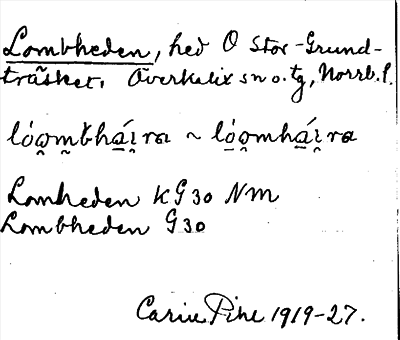 Lombheden, hed O Stor-Grund-
träsket. Överkalix sn o. tg, Norrb. l.
ló̯o̯m̥bha̱i̯ra ~ ló̯o̯mha̱i̯ra
Lomheden KG 30 NM
Lombheden G 30
Carin Pihl 1919-27.